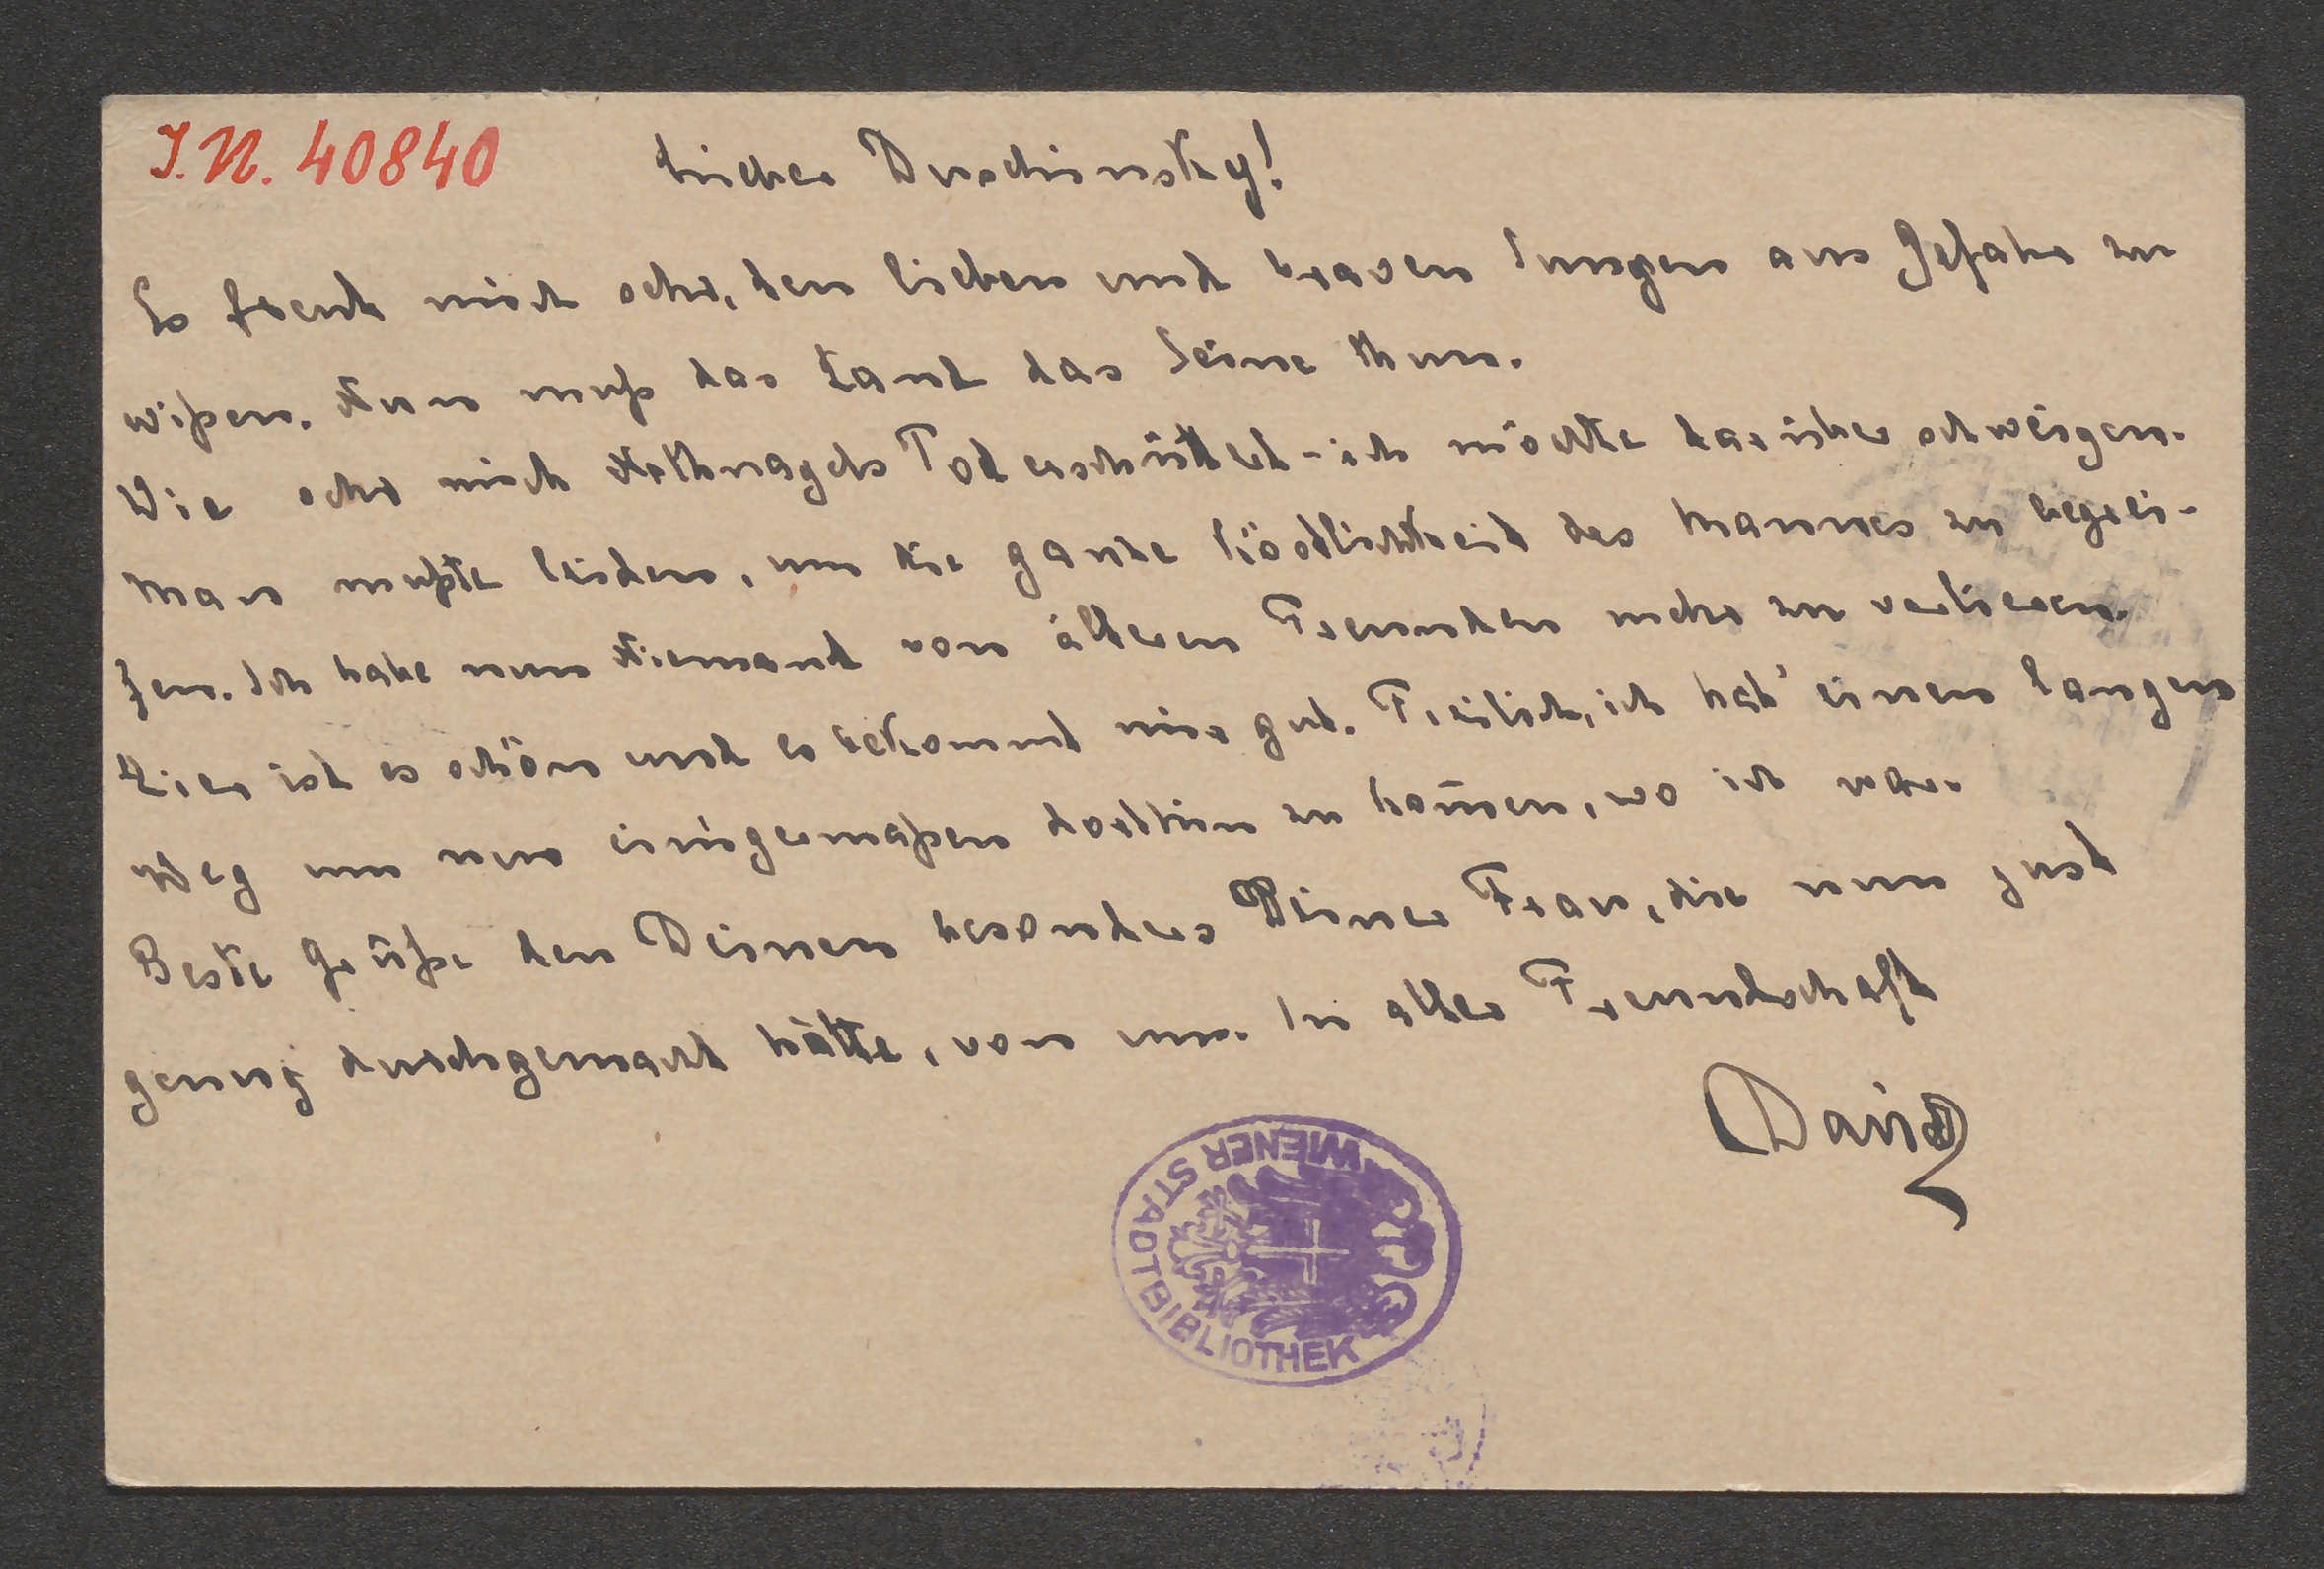 I.N. 40840
Lieber Duschinsky!
Es freut mich sehr, den lieben und braven Jungen aus Gefahr zu
wißen. Nun muß das Land das Seine thun.
Wie sehr mich Nothnagels Tod erschüttert - ich möchte darüber schweigen.
Man mußte leiden, um die ganze Köstlichkeit des Mannes zu begrei-
fen. Ich habe nun Niemand von älteren Freunden mehr zu verlieren.
Hier ist es schön und es bekommt mir gut. Freilich, ich hab' einen langen
Weg um nur einigermaßen dorthin zu kom̄en, wo ich war.
Beste Grüße den Deinen besonders Deiner Frau, die nun just
genug durchgemacht hätte, von uns. In alter Freundschaft
David
WIENER STADTBIBLIOTHEK